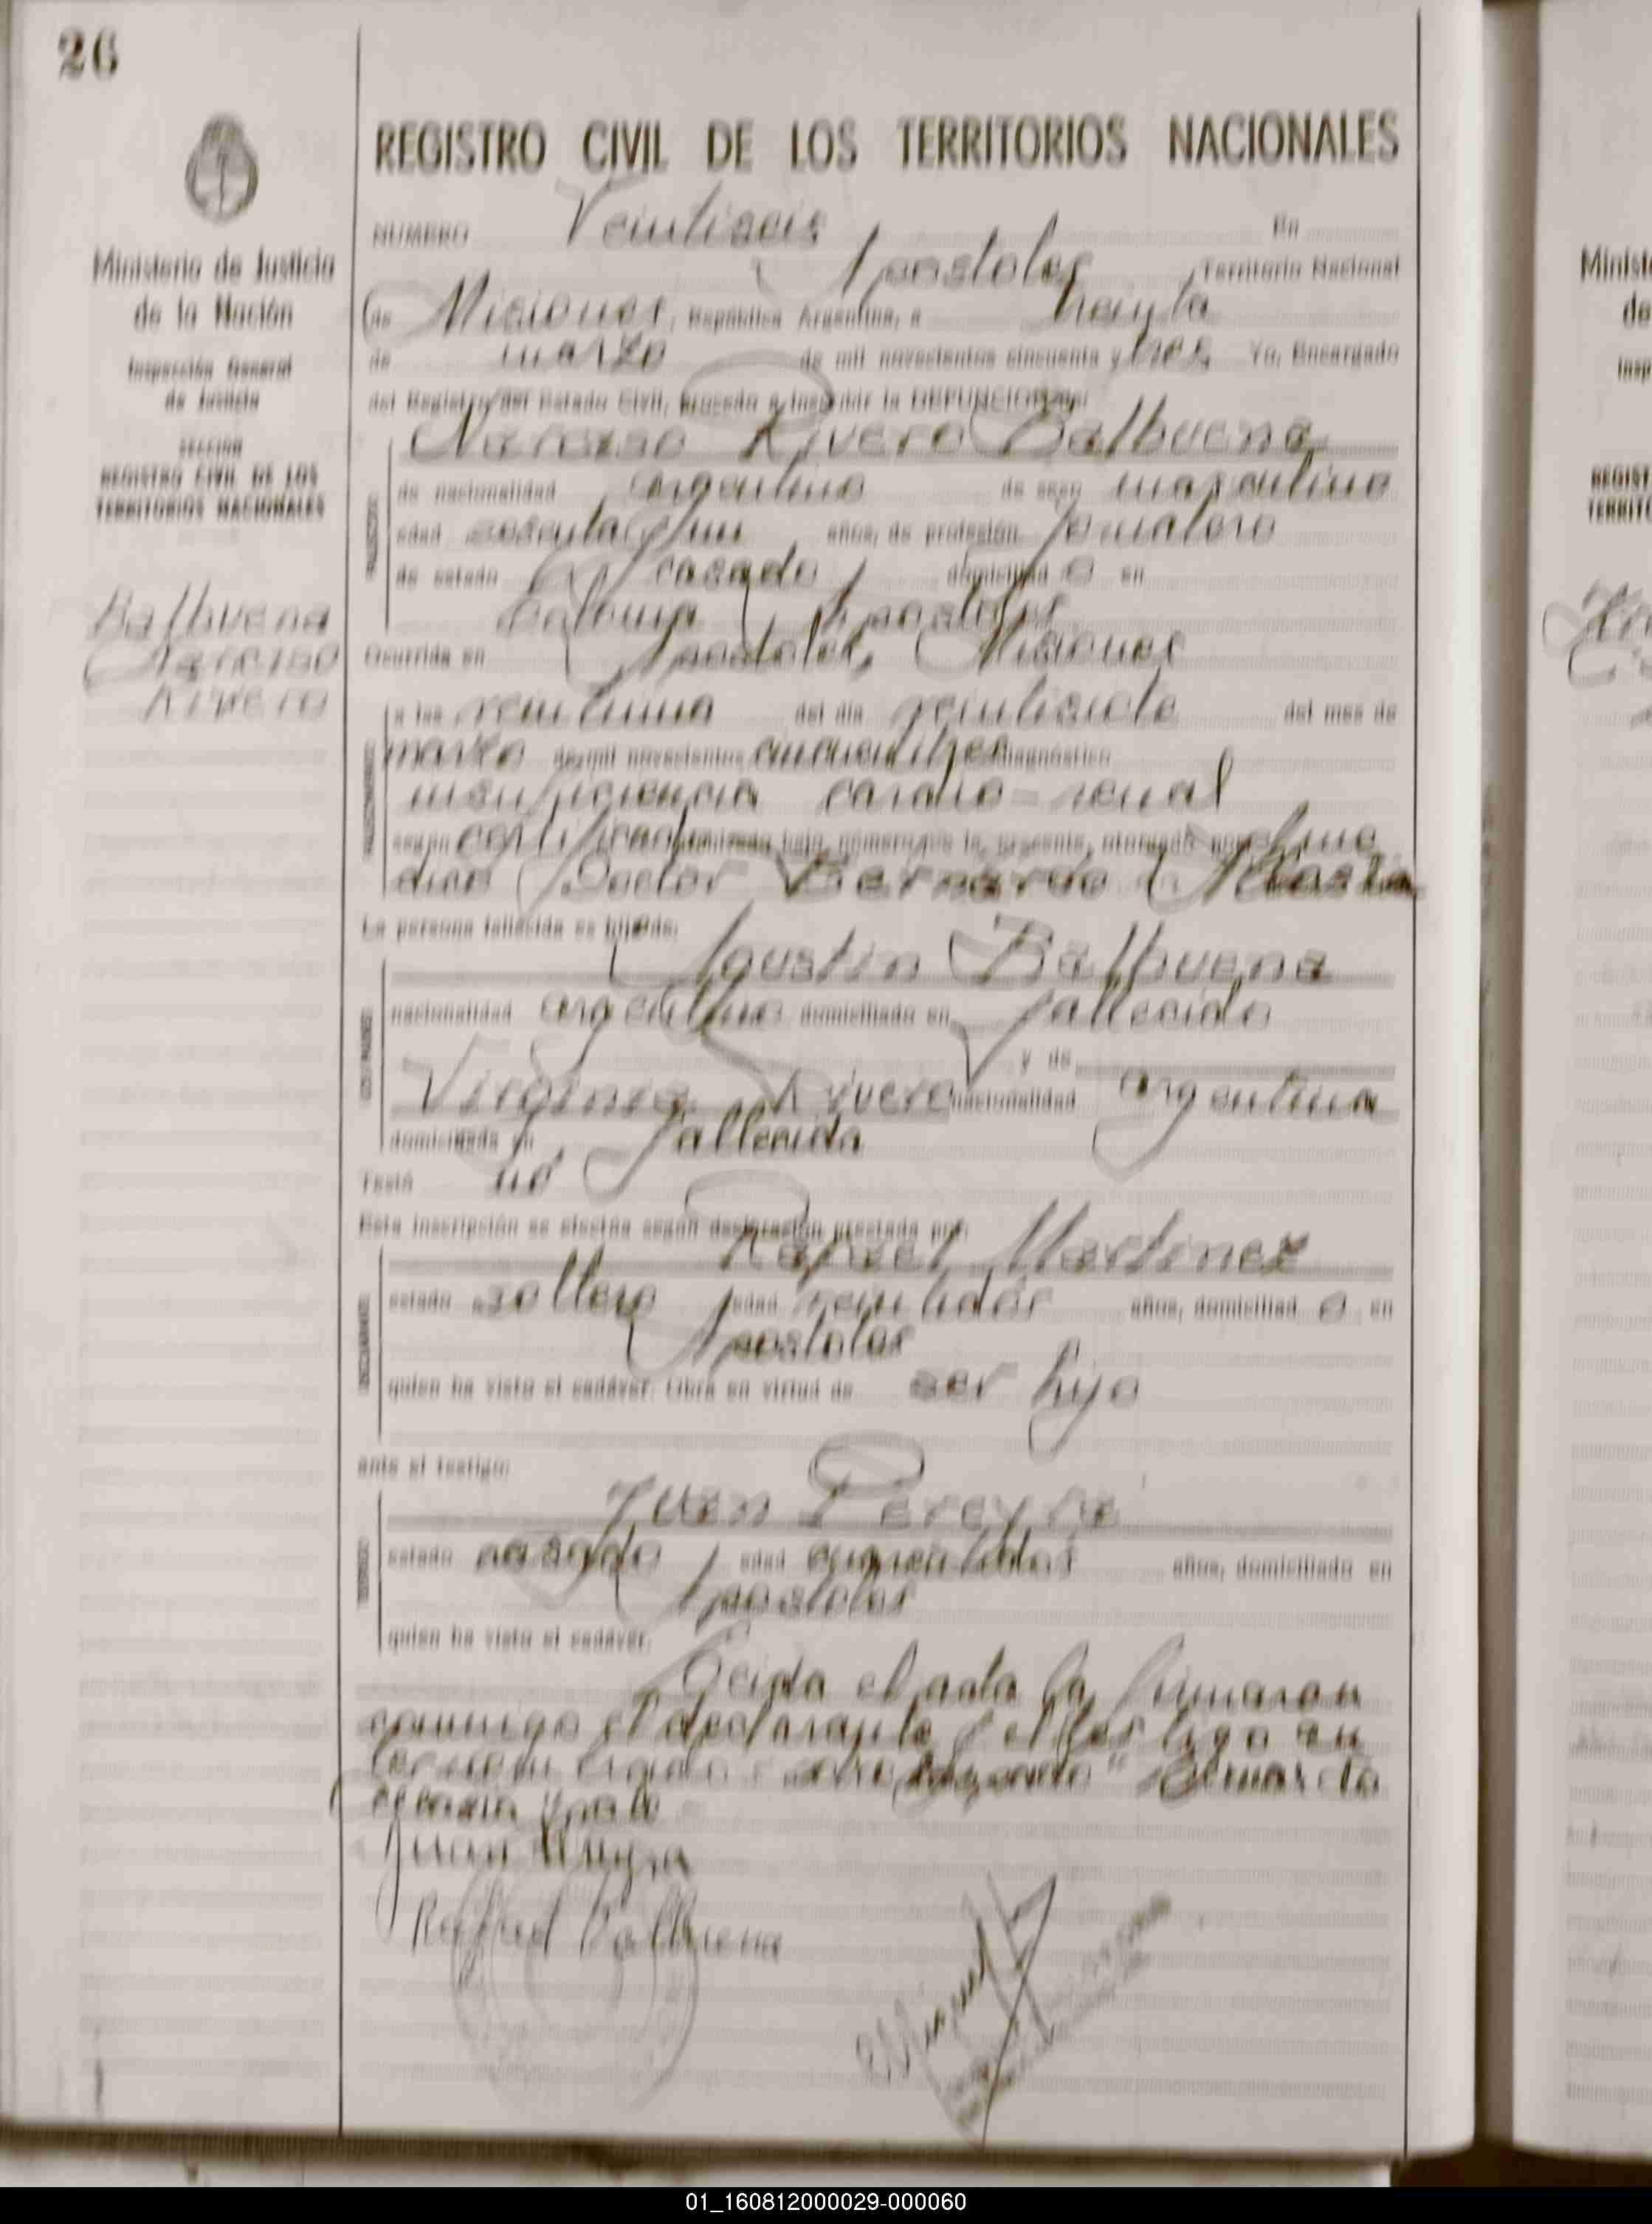 26
REGISTRO CIVIL DE LOS TERRITORIOS NACIONALES
Ministerio de Justicia
de la Nación
Inspección General
de Justicia
SECCION
REGISTRO CIVIL DE LOS
TERRITORIOS NACIONALES
Balbuena
Narciso
Rivero
NUMERO Veintiseis En
Apostoles, Territorio Nacional
de Misiones, República Argentina, a treinta
de marzo de mil novecientos cincuenta y tres Yo, Encargado
del Registro del Estado Civil, procedo a inscribir la DEFUNCION de:
Narciso Rivero Balbuena
de nacionalidad argentino de sexo masculino
edad sesenta y un años, de profesión jornalero
de estado casado domiciliad o en
Apostoles
Ocurrida en Apostoles, Misiones
a las veintiuna del día veintisiete del mes de
marzo de mil novecientos cincuentitres diagnóstico
insuficiencia cardio-renal
según certificado bajo número de la presente, otorgado por el me
dico Doctor Bernardo
La persona fallecida es hijo de:
Agustin Balbuena
nacionalidad argentino domiciliado en fallecido
y de
Virginia Rivero nacionalidad argentina
domiciliada en fallecida
Testó no
Esta inscripción se efectúa según declaración prestada por:
Rafael Martinez
estado soltero edad veintidos años, domiciliad o en
Apostoles
quien ha visto el cadáver. Obra en virtud de ser hijo
ante el testigo:
Juan Pereyra
estado casado edad años, domiciliado en
Apostoles
quien ha visto el cadáver.
Leida el acta la firmaron
conmigo el declarante y el testigo
Juan
Rafael Balbuena
01_160812000029-000060
Minist
de
Insp
REGIST
TERRIT